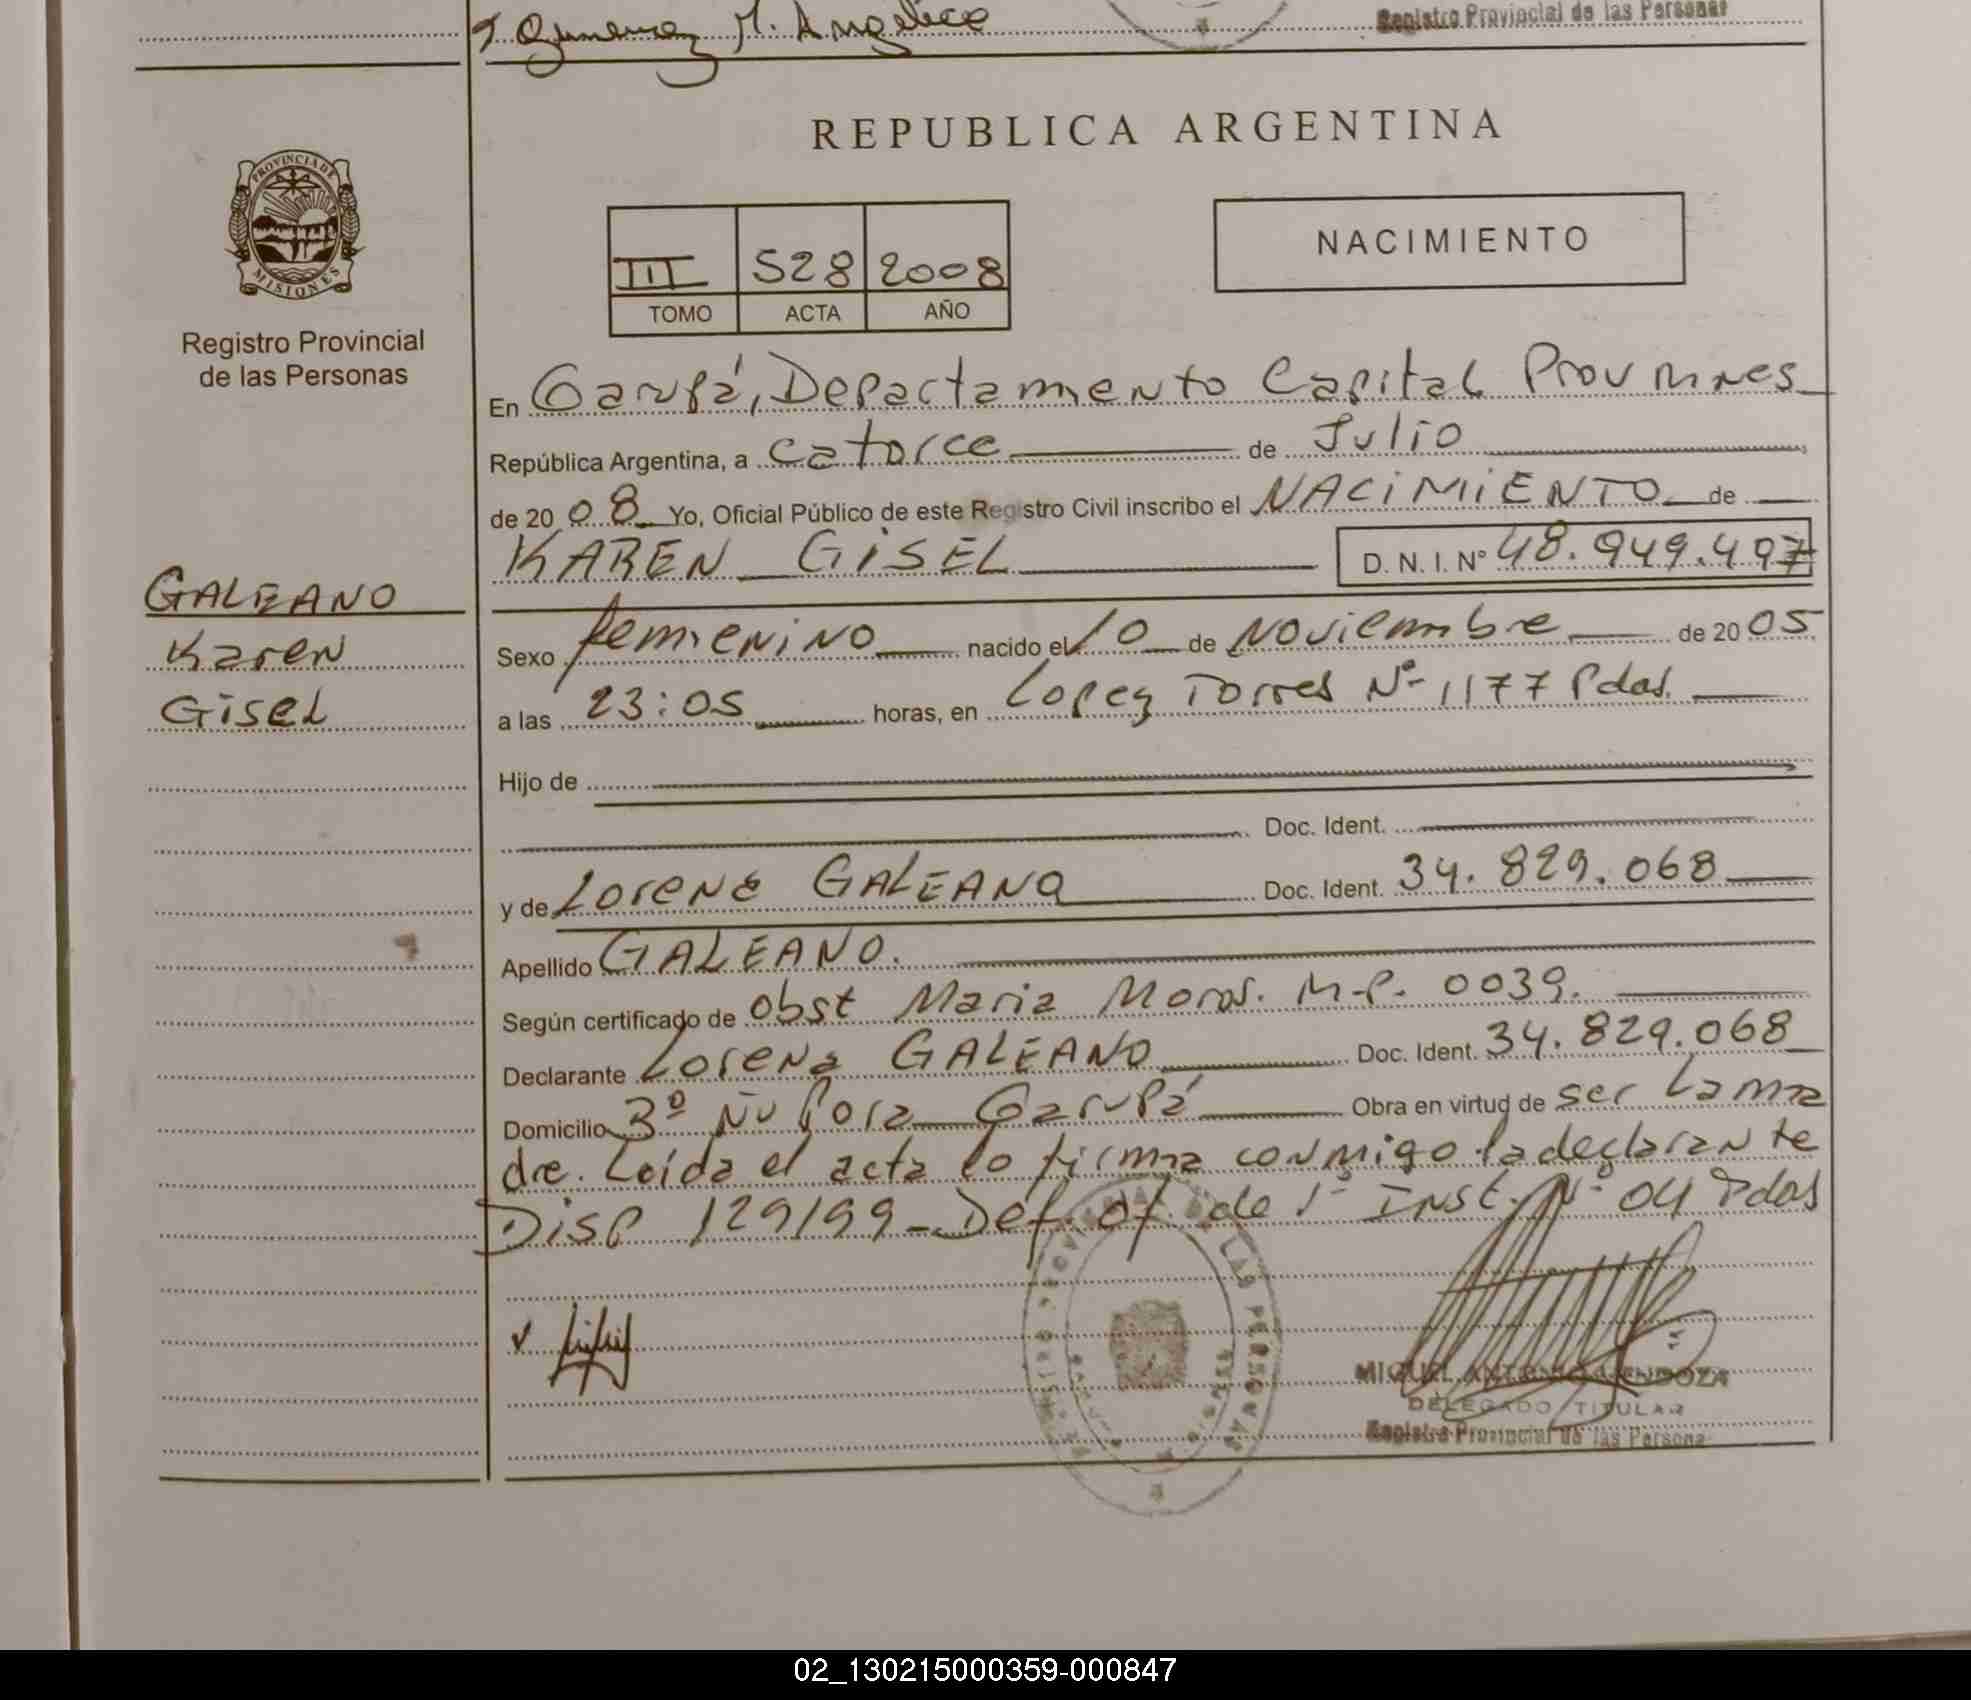 Gimenez M. Angelica
Registro Provincial de las Personas
REPUBLICA ARGENTINA
PROVINCIA DE
MISIONES
Registro Provincial
de las Personas
III 528 2008
TOMO ACTA AÑO
NACIMIENTO
En Garupá, Departamento Capital Prov Mnes
República Argentina, a catorce de Julio
de 2008 Yo, Oficial Público de este Registro Civil inscribo el NACIMIENTO de
KAREN GISEL D. N. I. Nº 48.949.497
GALEANO
Karen
Gisel
Sexo femenino nacido el 10 de Noviembre de 2005
a las 23:05 horas, en Lopez Torres Nº 1177 Pdas.
Hijo de
Doc. Ident.
y de Lorena GALEANO Doc. Ident. 34.829.068
Apellido GALEANO.
Según certificado de obst Maria M.P. 0039.
Declarante Lorena GALEANO Doc. Ident. 34.829.068
Domicilio Bº Ñu Pora Garupá Obra en virtud de ser la ma
dre. Leída el acta lo firma conmigo la declarante
Disp 129/99 - Def. of. de 1º Inst. Nº 04 Pdas
MIGUEL ANTONIO MENDOZA
DELEGADO TITULAR
Registro Provincial de las Persona
02_130215000359-000847